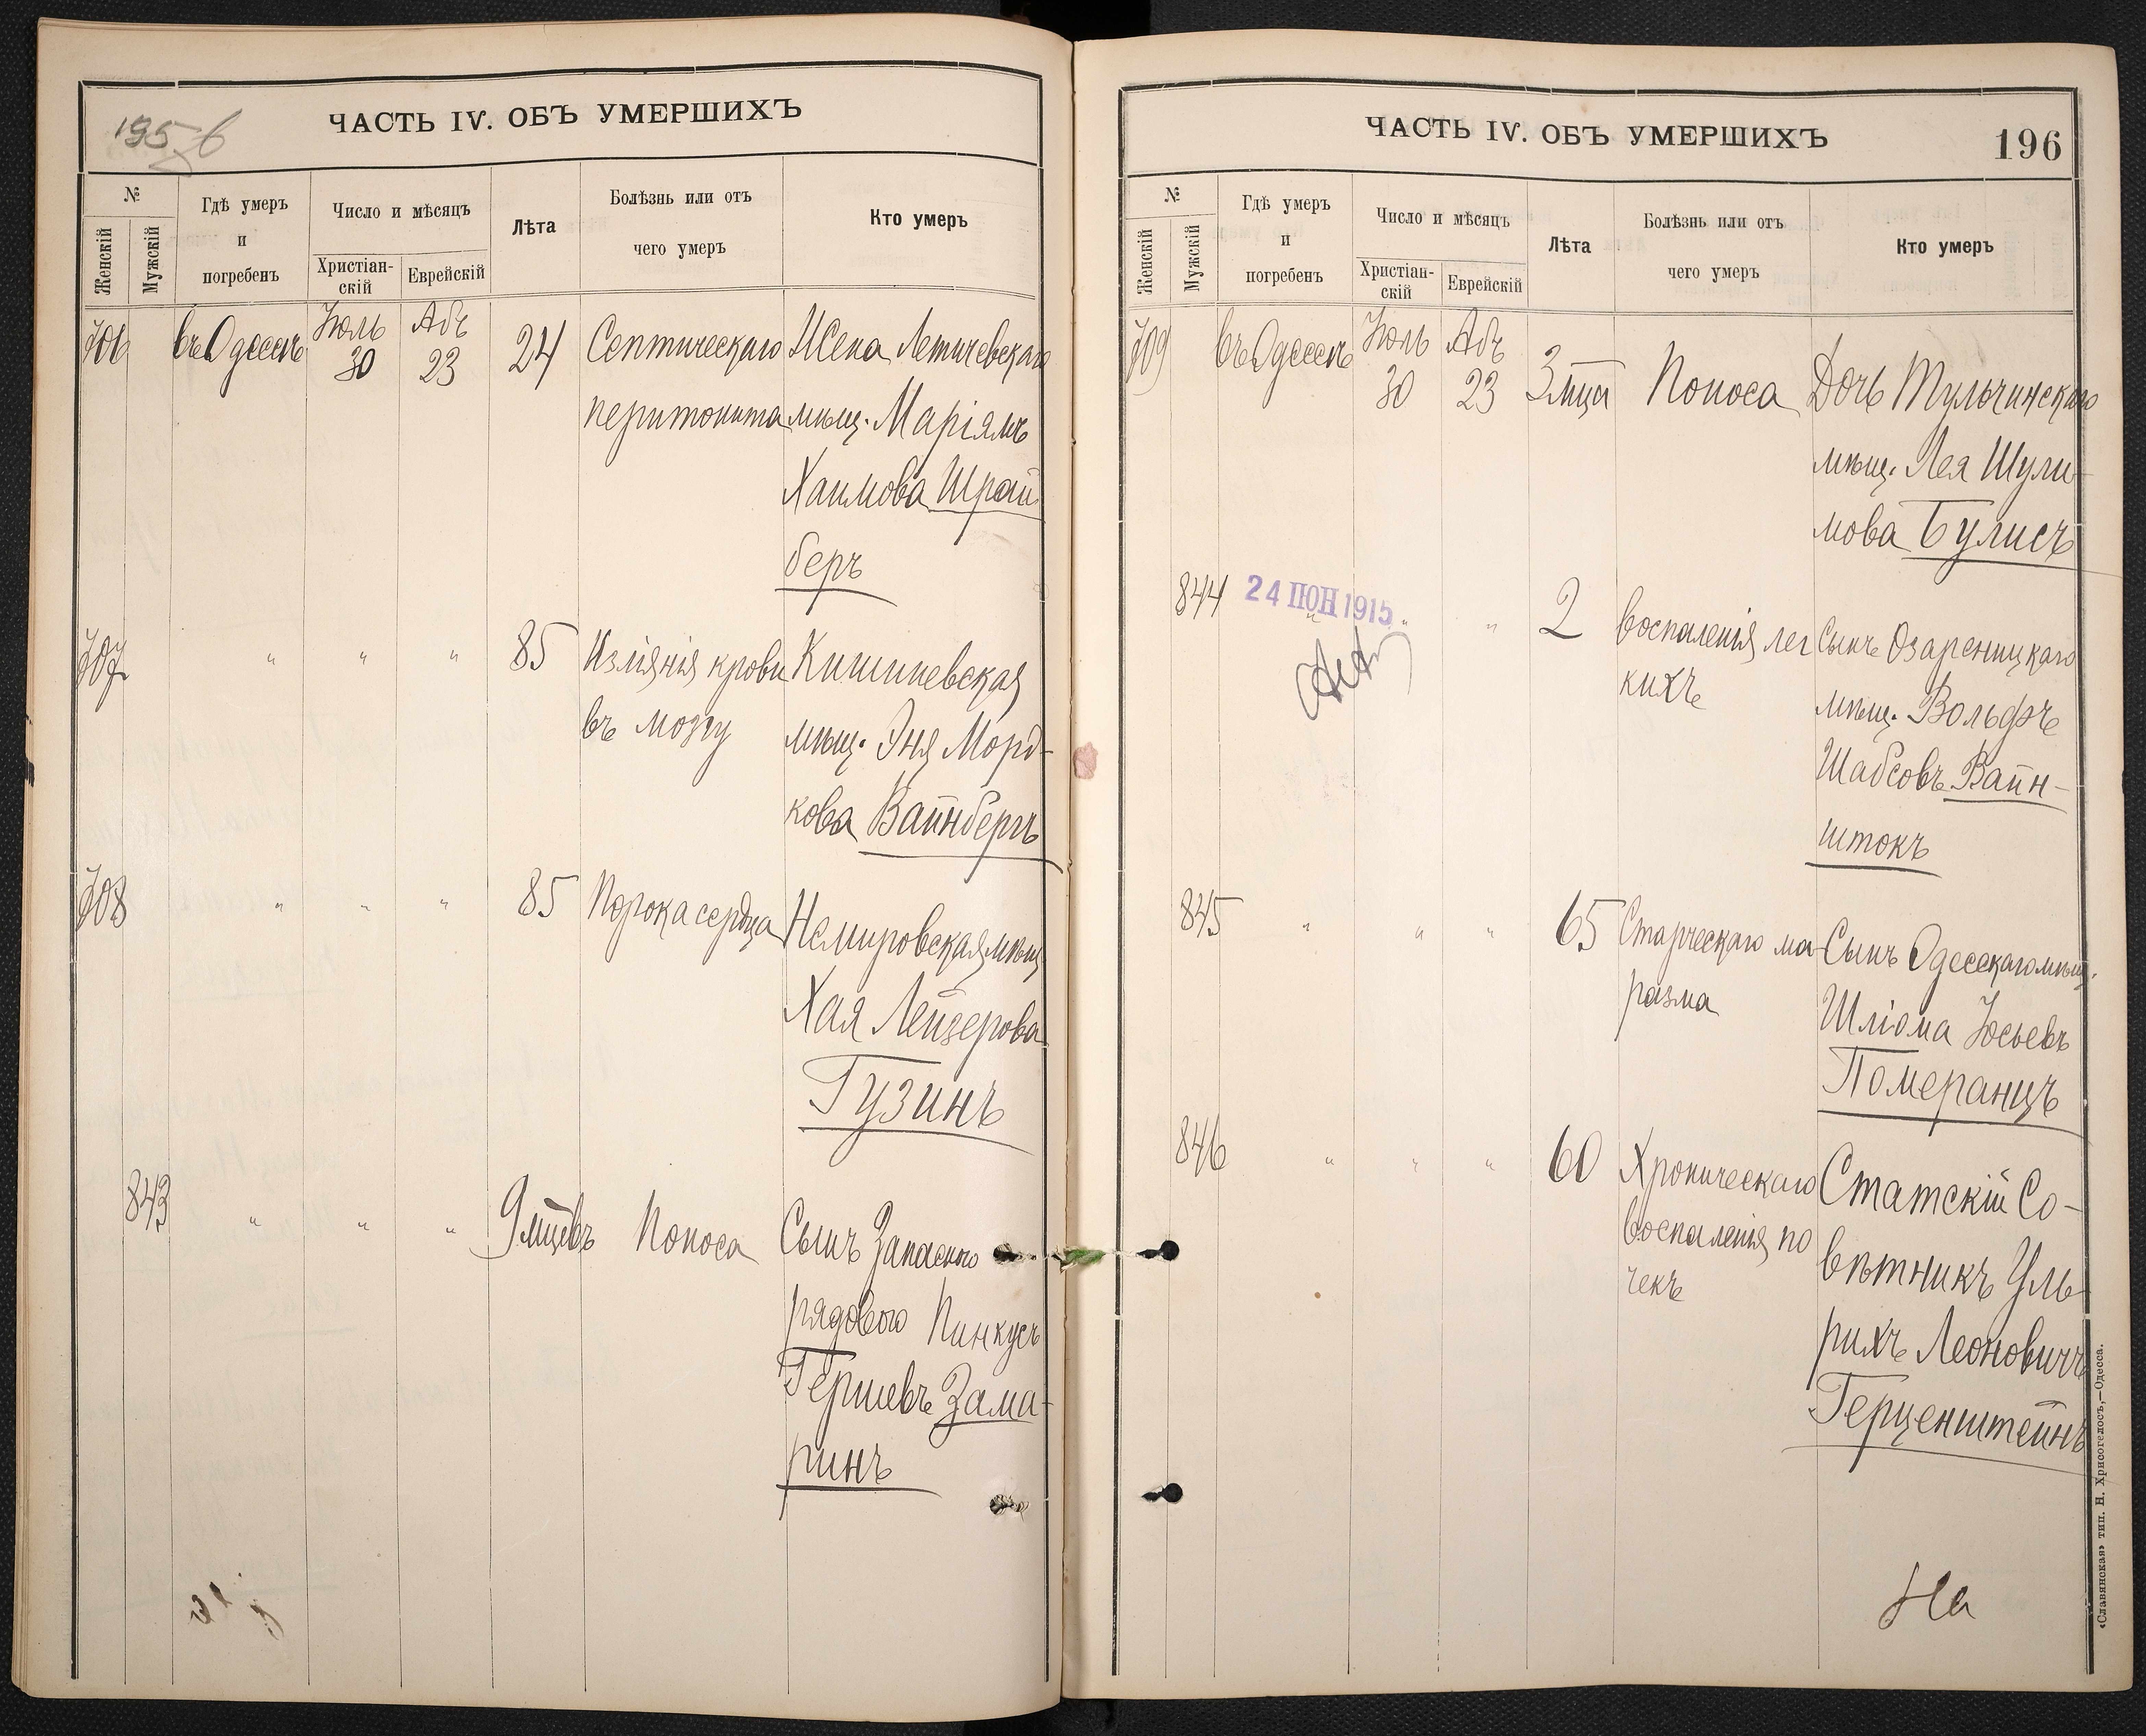 195 об
ЧАСТЬ IV. ОБЪ УМЕРШИХЪ
№
Женскій
Мужскій
Гдѣ умеръ
и
погребенъ
Число и мѣсяцъ
Христіан-
скій
Еврейскій
Лѣта
Болѣзнь или отъ
чего умеръ
Кто умеръ
706
въ Одессѣ
Іюль
30
Абъ
23
24
Септическаго
перитонита
Жена Летичевскаго
мѣщ. Маріямъ
Хаимова Шрай
беръ
707
"
"
"
85
Изліянія крови
въ мозгу
Кишиневская
мѣщ. Эня Морд-
кова Вайнбергъ
708
"
"
"
85
Порока сердца
Немировская мѣщ.
Хая Лейзерова
Гузинъ
843
"
"
"
9 мцевъ
Поноса
Сынъ Запаснаго
рядового Пинкусъ
Гершевъ Зама-
ринъ
ЧАСТЬ IV. ОБЪ УМЕРШИХЪ
196
№
Женскій
Мужскій
Гдѣ умеръ
и
погребенъ
Число и мѣсяцъ
Христіан-
скій
Еврейскій
Лѣта
Болѣзнь или отъ
чего умеръ
Кто умеръ
709
въ Одессѣ
Іюль
30
Абъ
23
3 мца
Поноса
Дочь Тульчинскаго
мѣщ. Лея Шули-
мова Булисъ
844
24 ІЮН 1915
"
"
"
2
воспаленія лег
кихъ
Сынъ Озаренецкаго
мѣщ. Вольфъ
Шабсовъ Вайн-
штокъ
845
"
"
"
65
Старческаго ма-
разма
Сынъ Одесскаго мѣщ.
Шліома Іосьевъ
Померанцъ
846
"
"
"
60
Хроническаго
воспаленія по
чекъ
Статскій Со-
вѣтникъ Уль-
рихъ Леоновичъ
Герценштейнъ
На
«Славянская» тип. Н. Хрисогелосъ,—Одесса.